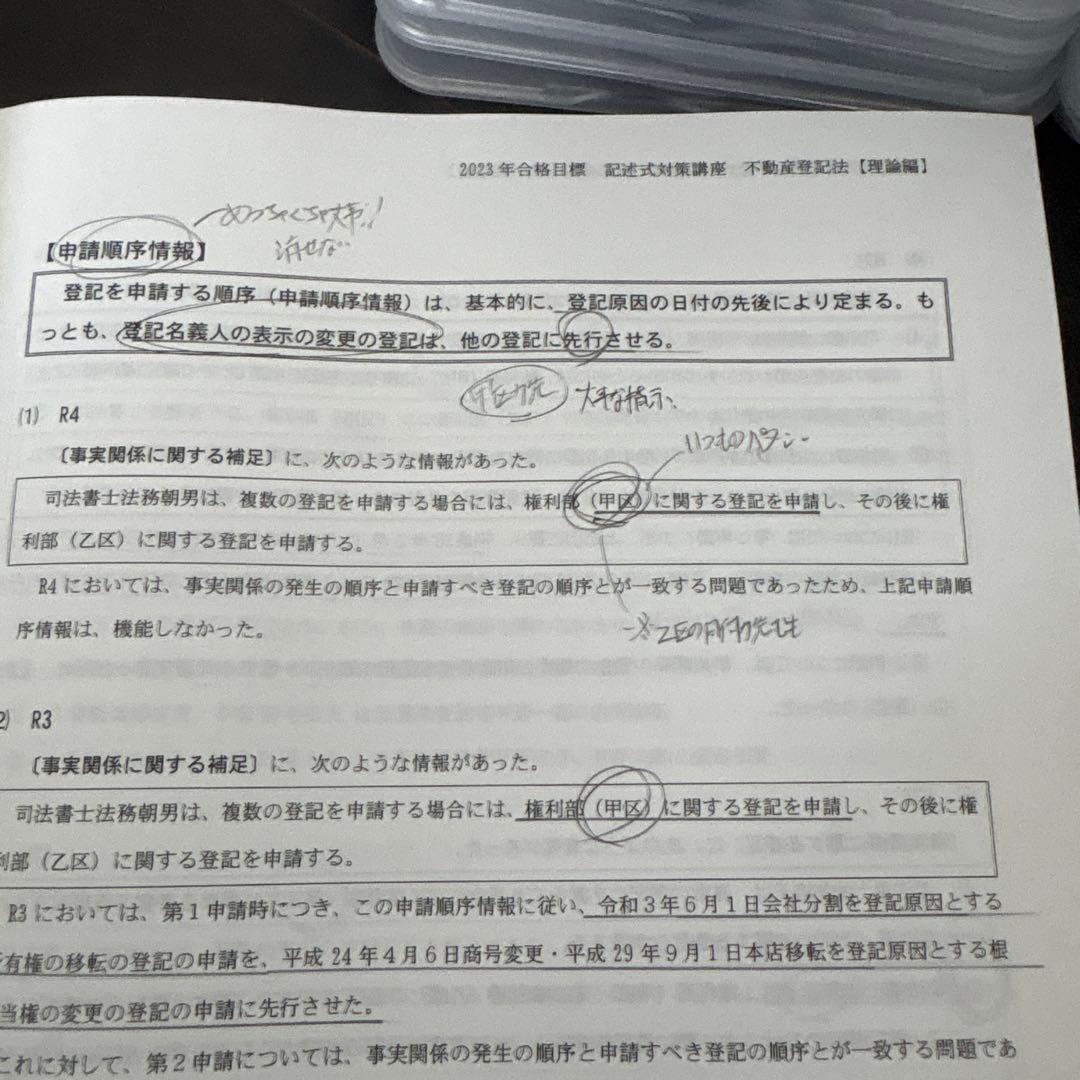 2023年合格目標　記述式対策講座　不動産登記法【理論編】
めっちゃくちゃ大事！
消せない
【申請順序情報】
登記を申請する順序（申請順序情報）は、基本的に、登記原因の日付の先後により定まる。も
っとも、登記名義人の表示の変更の登記は、他の登記に先行させる。
甲区が先　大事な指示、
(1)　R4
いつものパターン
〔事実関係に関する補足〕に、次のような情報があった。
司法書士法務朝男は、複数の登記を申請する場合には、権利部（甲区）に関する登記を申請し、その後に権
利部（乙区）に関する登記を申請する。
R4においては、事実関係の発生の順序と申請すべき登記の順序とが一致する問題であったため、上記申請順
序情報は、機能しなかった。
※乙区の方が先でも
2)　R3
〔事実関係に関する補足〕に、次のような情報があった。
司法書士法務朝男は、複数の登記を申請する場合には、権利部（甲区）に関する登記を申請し、その後に権
利部（乙区）に関する登記を申請する。
R3においては、第1申請時につき、この申請順序情報に従い、令和3年6月1日会社分割を登記原因とする
有権の移転の登記の申請を、平成24年4月6日商号変更・平成29年9月1日本店移転を登記原因とする根
当権の変更の登記の申請に先行させた。
これに対して、第2申請については、事実関係の発生の順序と申請すべき登記の順序とが一致する問題であ